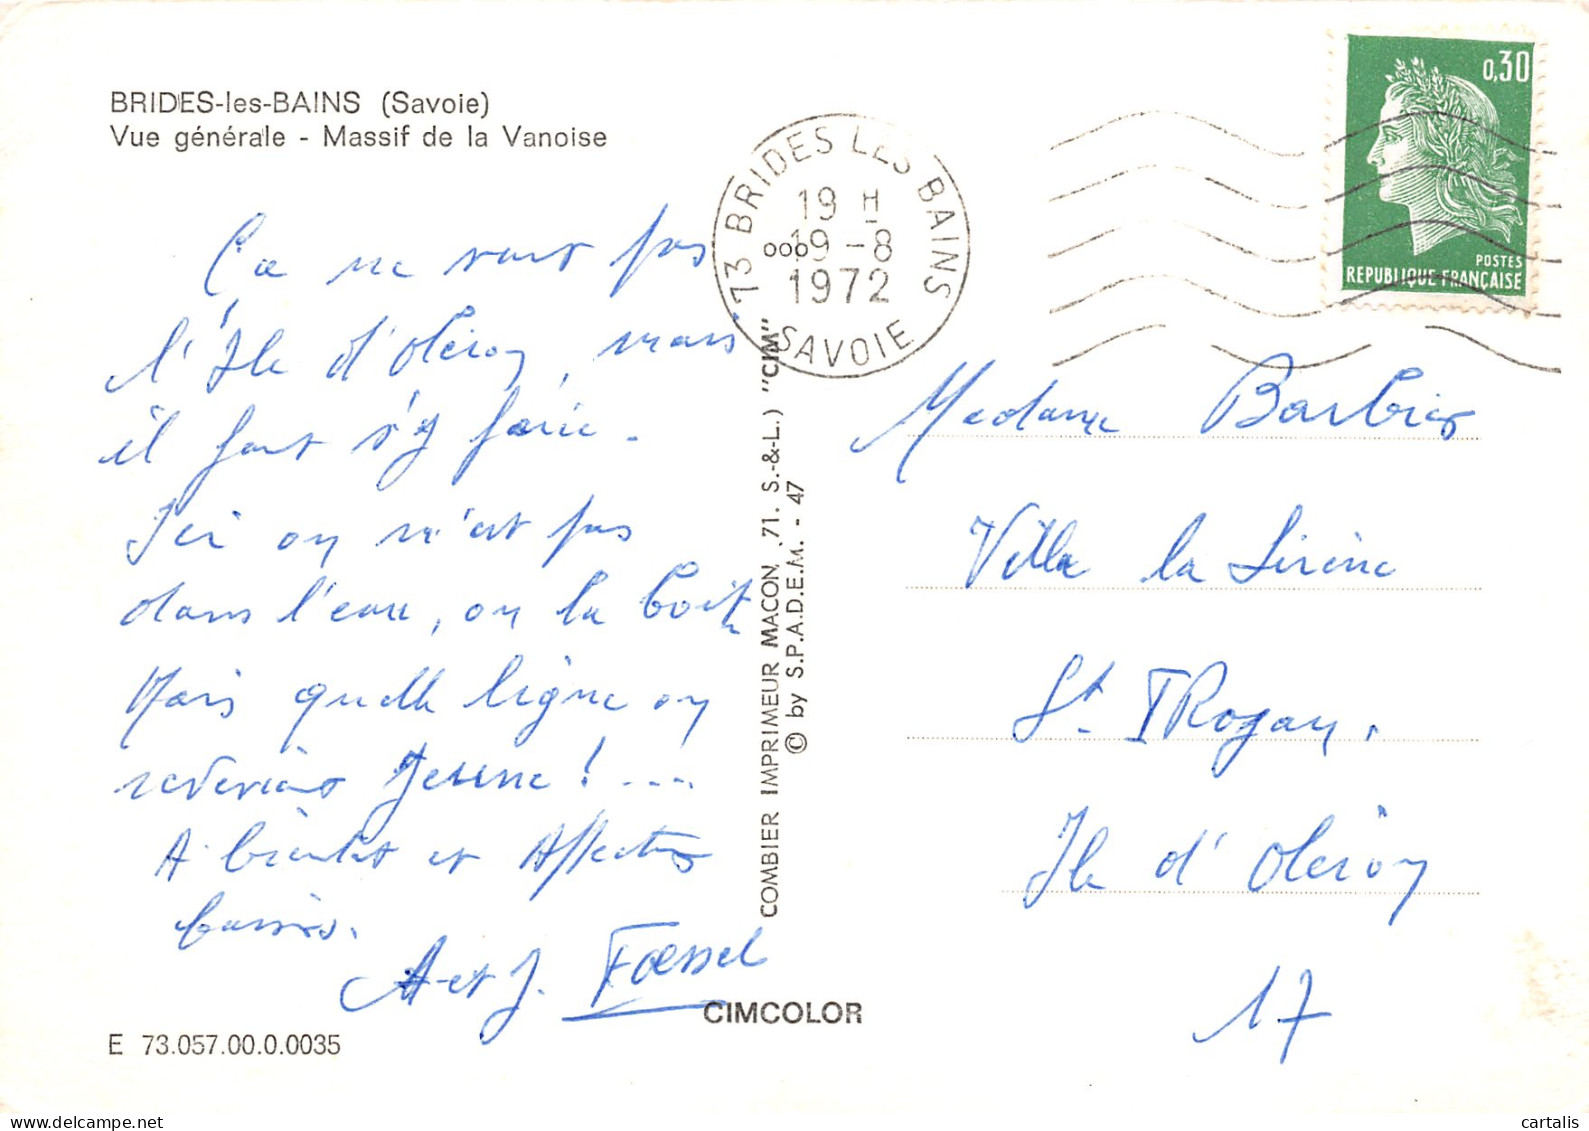 BRIDES-les-BAINS (Savoie)
Vue générale - Massif de la Vanoise
73 BRIDES LES BAINS
19 H
19-8
1972
SAVOIE
0,30
POSTES
REPUBLIQUE FRANÇAISE
Ça ne vaut pas
l'Ile d'Oléron, mais
il faut s'y faire.
Ici on n'est pas
dans l'eau, on la boit
Mais quelle ligne on
A bientôt et Affectueux
baisers.
A et J. Foessel
COMBIER IMPRIMEUR MACON, 71. S.-&-L.) "CIM"
© by S.P.A.D.E.M. - 47
Madame Barbier
Villa la Sirène
St. TRojan,
Ile d'Oléron
17
CIMCOLOR
E 73.057.00.0.0035
cartalis